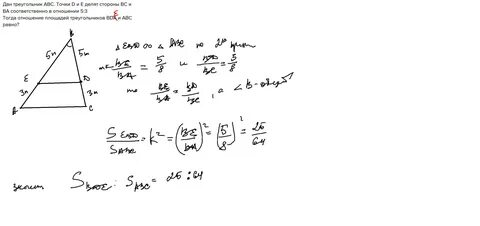 Дан треугольник ABC. Точки D и E делят стороны BC и
BA соответственно в отношении 5:3
Тогда отношение площадей треугольников BDE и ABC
равно?
B
5x 5x
E D
3x 3x
A C
△EBD ∞ △ABC по 2м
т.к. BE/BA = 5/8 и BD/BC = 5/8
то BE/BA = BD/BC, а ∠B-общий
S EBD / S ABC = k² = (BE/BA)² = (5/8)² = 25/64
значит S BDE : S ABC = 25:64